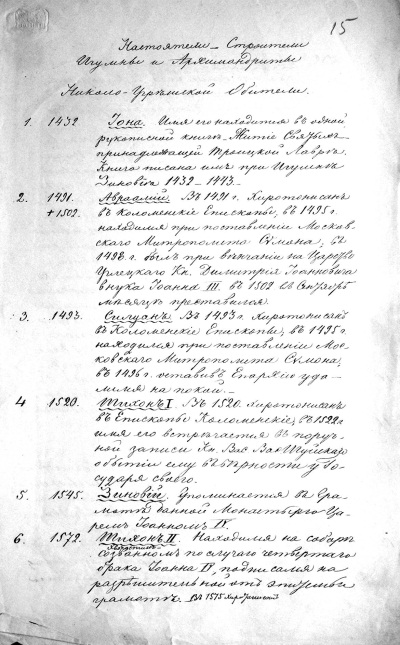 15
Настоятели – Строители
Игумены и Архимандриты
Николо-Угрѣшской Обители.
1. 1432. Іона. Имя его находится въ одной
рукописной книгѣ Житіе Святыхъ
принадлежащей Троицкой Лаврѣ.
Книга писана имъ при Игуменѣ
Зиновіи 1432–1443.
2. 1491. Авраамій. Въ 1491 г. Хиротонисанъ
+ 1502. въ Коломенскіе Епископы, въ 1495 г.
находился при поставленіи Москов-
скаго Митрополита Симона; въ
1498 г. былъ при вѣнчаніи на Царство
Углецкаго Кн. Димитрія Іоанновича
внука Іоанна III. въ 1502 въ Сентябрѣ
мѣсяцѣ преставился.
3. 1493. Силуанъ. Въ 1493 г. Хиротонисанъ
въ Коломенскіе Епископы; въ 1495 г.
находился при поставленіи Мос-
ковскаго Митрополита Симона;
въ 1496 г. оставивъ Епархію уда-
лился на покой.
4 1520. Тихонъ I. Въ 1520. Хиротонисанъ
въ Епископы Коломенскіе; въ 1522 г.
имя его встрѣчается въ поруч-
ной записи Кн. Вас. Вас. Шуйскаго
о бытіи ему въ вѣрности у Го-
сударя своего.
5. 1545. Зиновій. Упоминается въ Гра-
мотѣ данной Монастырю Ца-
ремъ Іоанномъ IV.
6. 1572. Тихонъ II. Находился на соборѣ
созванномъ по случаю четвертаго
брака Іоанна IV, подписался на
разрѣшительной отъ эпитиміи
грамотѣ. Въ 1575